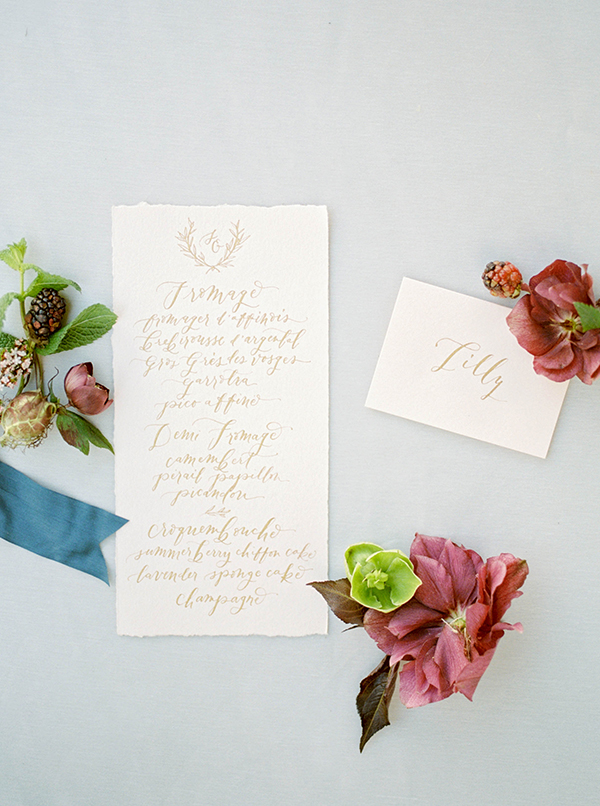 Fromage
fromager d'affinois
brebirousse d'argental
Gros Grès des vosges
garrotxa
pico affine
Demi Fromage
camembert
perail papillon
picandou
Croquembouche
summerberry chiffon cake
lavender sponge cake
champagne
Lilly